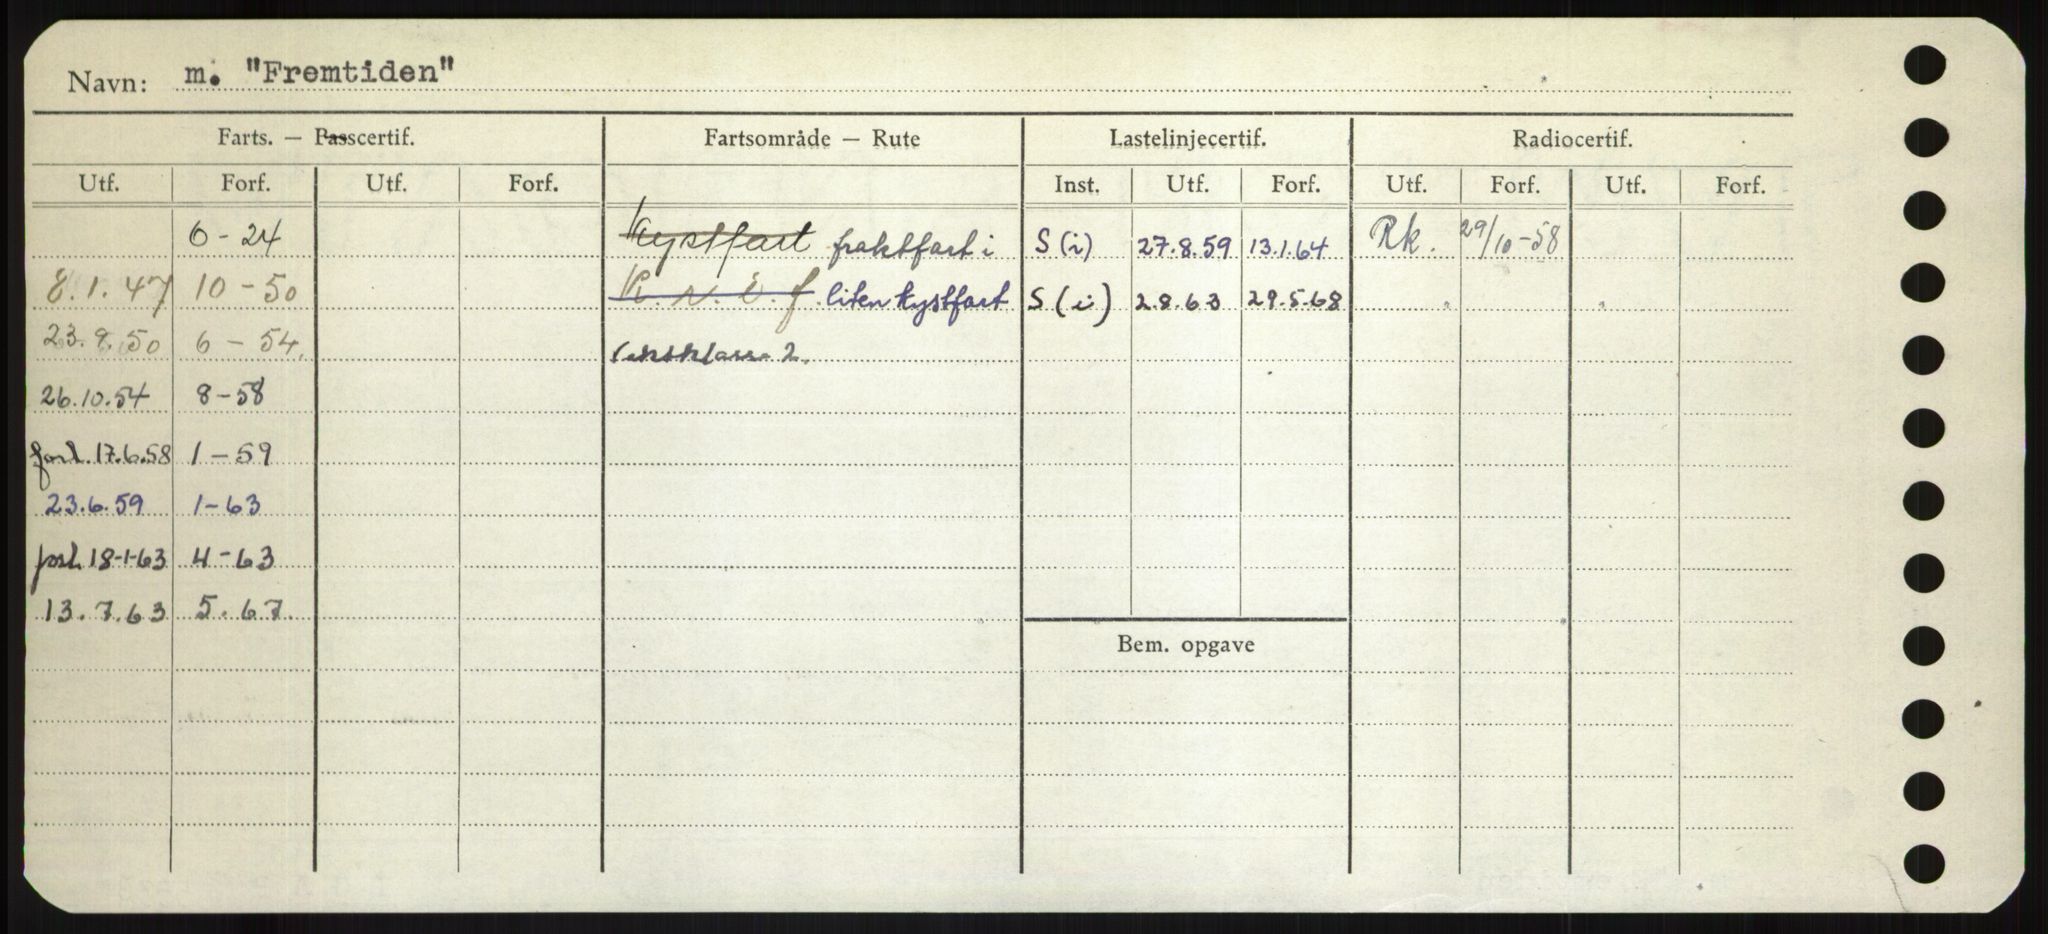 Navn: m. "Fremtiden"
Farts. — Passcertif. Fartsområde — Rute Lastelinjecertif. Radiocertif.
Utf. Forf. Utf. Forf. Inst. Utf. Forf. Utf. Forf. Utf. Forf.
6-24 Kystfart fraktfart i S (i) 27.8.59 13.1.64 Rk. 29/10-58
8.1.47 10-50 K. N. Ö. f. liten kystfart S (i) 2.8.63 29.5.68
50 6-54. 2.
26.10.54 8-58
forl. 17.6.58 1-59
23.6.59 1-63
forl. 18-1-63 4-63
13.7.63 5.67.
Bem. opgave